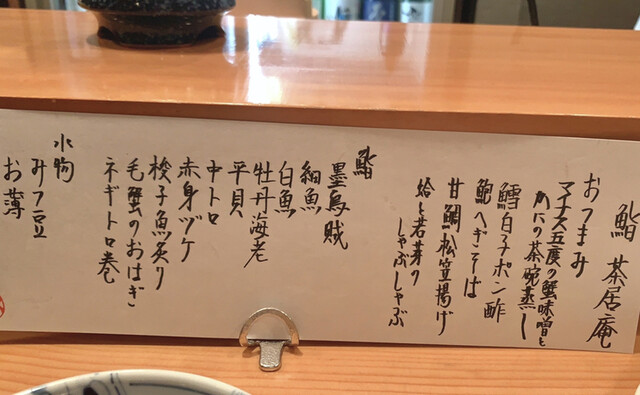 鮨 茶居庵
おつまみ
マイナス五度の蟹味噌と
かにの茶碗蒸し
鱈白子ポン酢
鮑へぎそば
甘鯛松笠揚げ
蛤と若芽の
しゃぶしゃぶ
鮨
墨烏賊
細魚
白魚
牡丹海老
平貝
中トロ
赤身ヅケ
梭子魚炙り
毛蟹のおはぎ
ネギトロ巻
水物
みつ豆
お薄